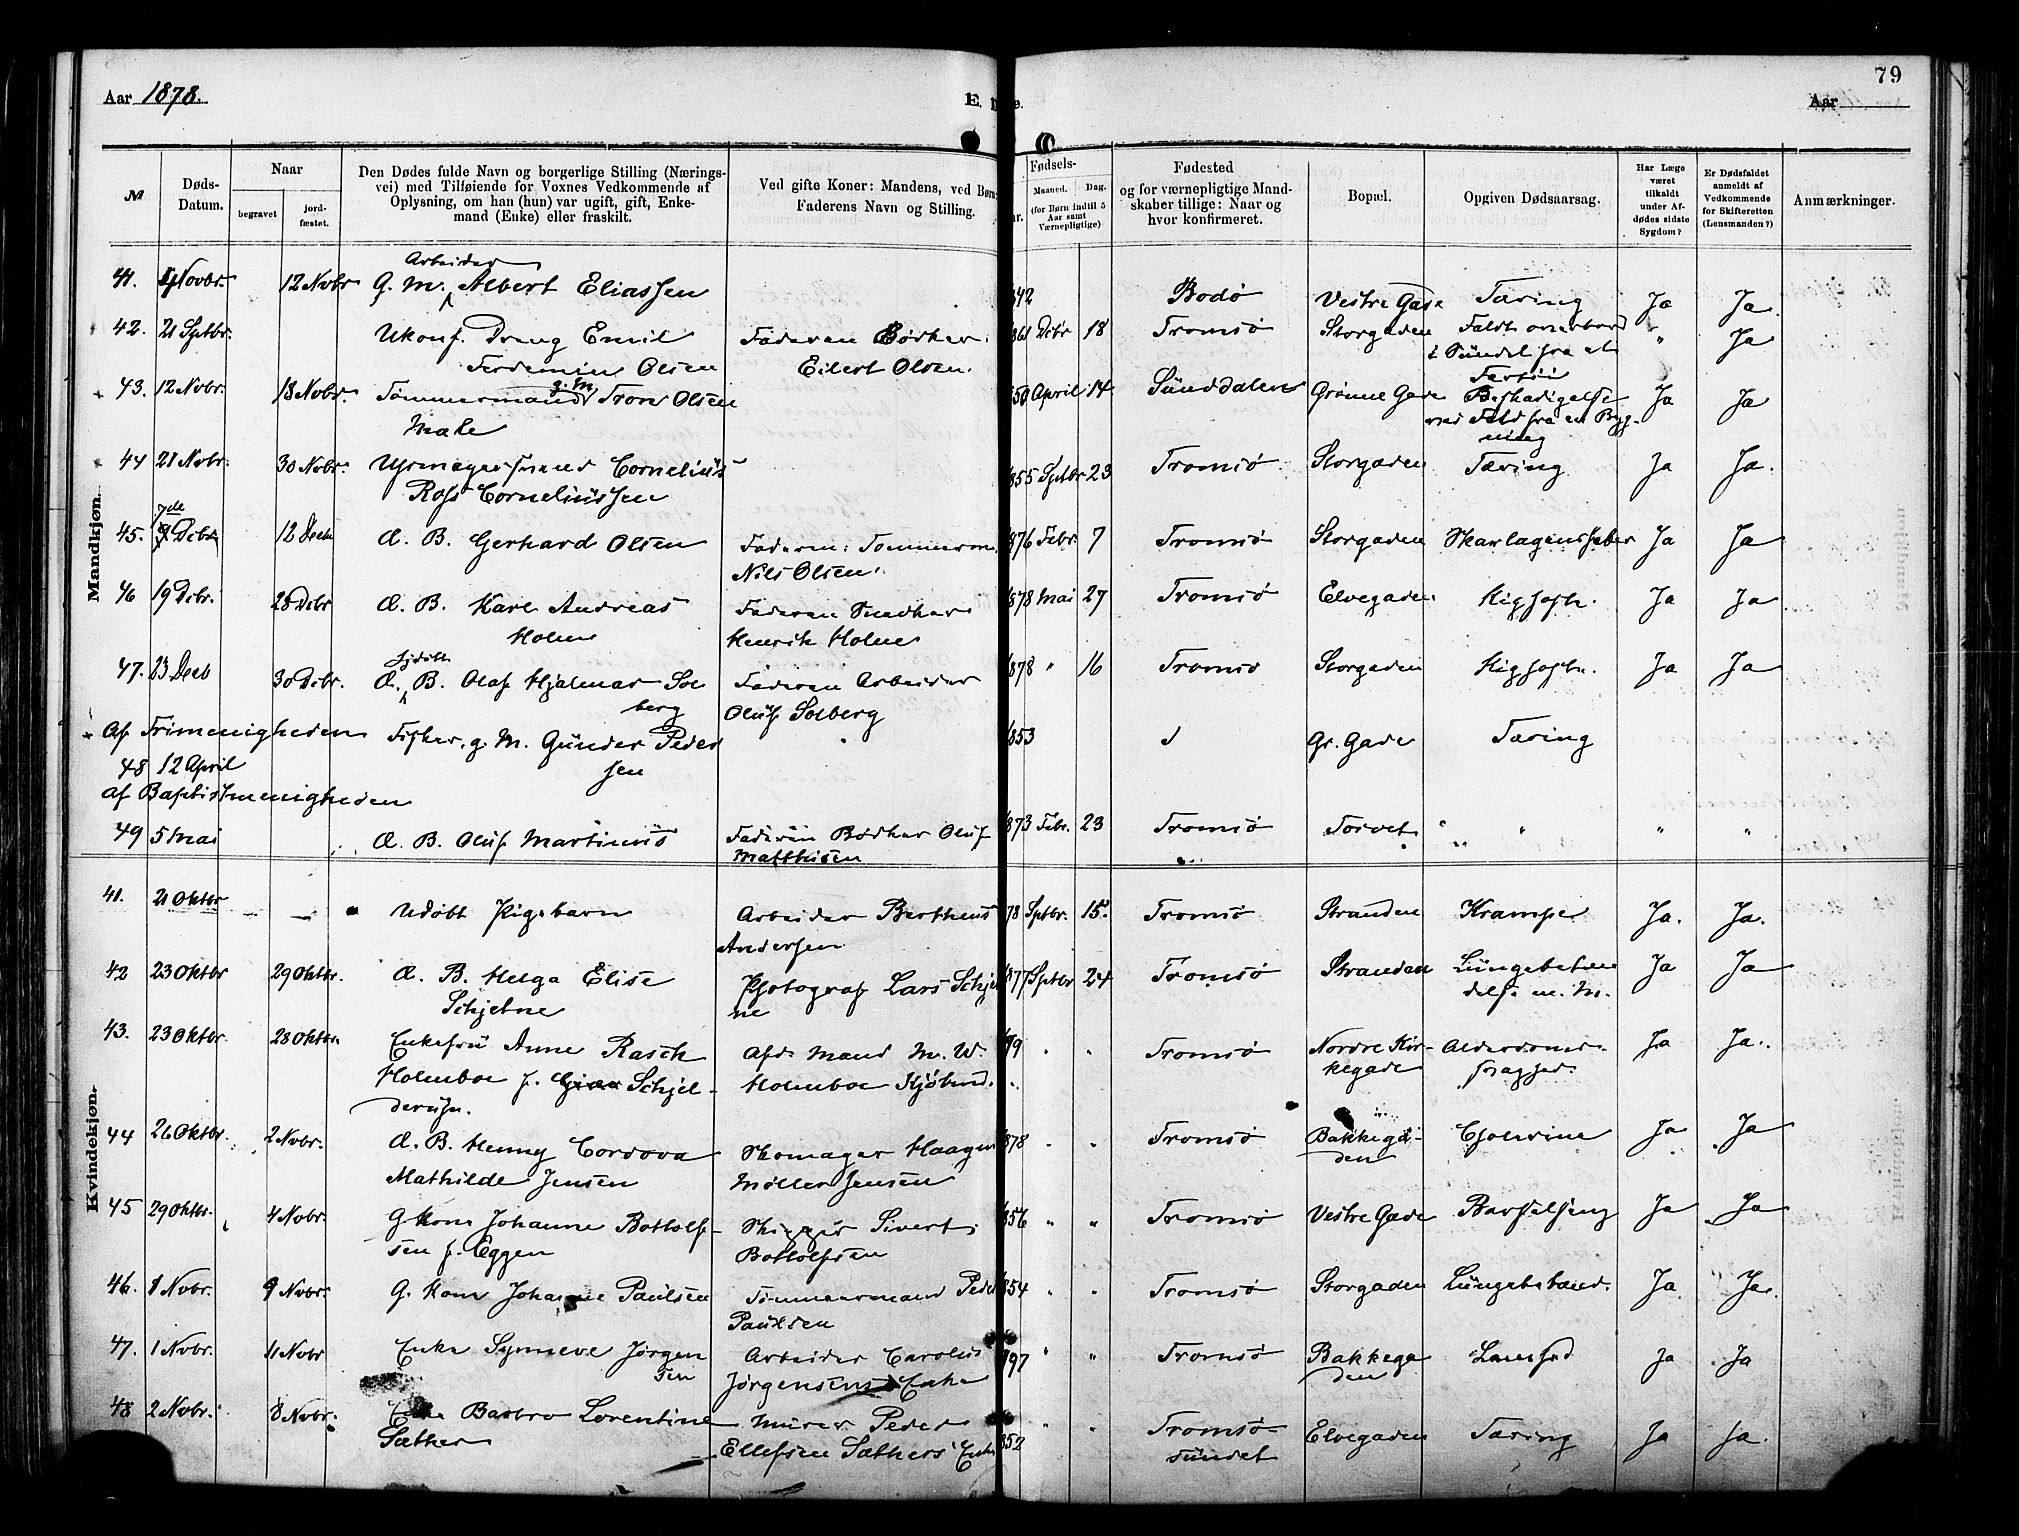 79
Aar 1878.
E.
Aar
№
Døds-
Datum.
Naar
begravet
jord-
fæstet.
Den Dødes fulde Navn og borgerlige Stilling (Nærings-
vei) med Tilføiende for Voxnes Vedkommende af
Oplysning, om han (hun) var ugift, gift, Enke-
mand (Enke) eller fraskilt.
Ved gifte Koner: Mandens, ved Børn:
Faderens Navn og Stilling.
Fødsels-
Maaned.
Dag.
(for Børn indtil 5
Aar samt
Værnepligtige)
Fødested
og for værnepligtige Mand-
skaber tillige: Naar og
hvor konfirmeret.
Bopæl.
Opgiven Dødsaarsag.
Har Læge
været
tilkaldt
under Af-
dødes sidste
Sygdom?
Er Dødsfaldet
anmeldt af
Vedkommende
for Skifteretten
(Lensmanden?)
Anmærkninger.
Mandkjøn.
Arbeider
41. Novbr. 12 Novbr G. M. Albert Eliassen 842 Bodø Vestre Gade Tæring Ja Ja.
42. 21 Sptbr. Ukonf. Dreng Emil Faderen Bødker 861 Dcbr 18 Tromsø Storgaden Faldt overbord " Ja
Ferdemin Olsen Eilert Olsen. i Sundet fra et
Fartøi
43. 12 Novbr. 18 Novbr. Tømmermand g. M. Tron Olsen 850 April 14 Sunddalen Grønne Gade Beskadigelse Ja Ja
Mæle ved Fald fra en Byg-
ning
44 21 Novbr. 30 Novbr. Urmagersvend Cornelius 855 Sptbr 23 Tromsø Storgaden Tæring Ja Ja.
Ross Corneliussen
7de
45. Dcbr 12 Decbr Æ. B. Gerhard Olsen Faderen: Tømmerm. 876 Febr. 7 Tromsø Storgaden Skarlagensfeber Ja Ja
Nils Olsen.
46 19 Dcbr. 28 Dcbr Æ. B. Karl Andreas Faderen Snedker 878 Mai 27 Tromsø Elvegaden Kighoste. Ja Ja
Holm Henrik Holm
Hjdøbt
47. 23 Decb 30 Dcbr. Æ. B. Olaf Hjalmar Sol Faderen Arbeider 878 " 16 Tromsø Storgaden Kighoste. Ja Ja
berg Oluf Solberg
Af Frimenigheden Fisker, g. M. Gunder Peder 853 Gr. Gade Tæring
48 12 April sen
af Baptistmenigheden
49 5 Mai Æ. B. Oluf Martinus Faderen Bødker Oluf 873 Febr. 23 Tromsø Torvet " " " "
Matthisen
Kvindekjøn.
41. 21 Oktbr — — Udøbt Pigebarn Arbeider Bertheus 78 Sptbr. 15. Tromsø Stranden Krampe Ja. Ja.
Andersen
42 23 Oktbr 29 Oktbr. Æ. B. Helga Elise Photograf Lars Schjet 877 Sptbr 24 Tromsø Stranden Lungebetæn Ja Ja
Schjetne ne delse m. M.
43. 23 Oktbr. 28 Oktbr. Enkefru Anne Rasch Afd. Mand M. W. 99 " " Tromsø Nordre Kir- Alderdoms- Ja Ja.
Holmboe f. Schjel- Holmboe Kjøbmd. kegade svaghed.
derup.
44 26 Oktbr. 2 Novbr. Æ. B. Henny Cordova Skomager Haagen 878 " " Tromsø Bakkega- Cholerine Ja Ja
Mathilde Jensen Møller Jensen den
45 29 Oktbr. 4 Novbr. G Kone Johanne Bottolf- Skipper Sivert 856 " " Tromsø Vestre Gade Barselseng Ja Ja
sen f. Eggen Bottolfsen
46. 1 Novbr. 9 Novbr. G. Kone Johanne Paulsen Tømmermand Peder 854 " " Tromsø Storgaden Lungebetænd. Ja Ja.
Paulsen
47. 1 Novbr. 11 Novbr Enke Synneve Jørgen Arbeider Carolius 797 " " Tromsø Bakkega Ja Ja
sen Jørgensens Enke den
48 2 Novbr. 8 Novbr. Enke Barbro Lorentine Murer Peder 852 " Tromsø- Elvegaden Tæring Ja Ja.
Sæther Ellefsen Sæthers Enke sundet